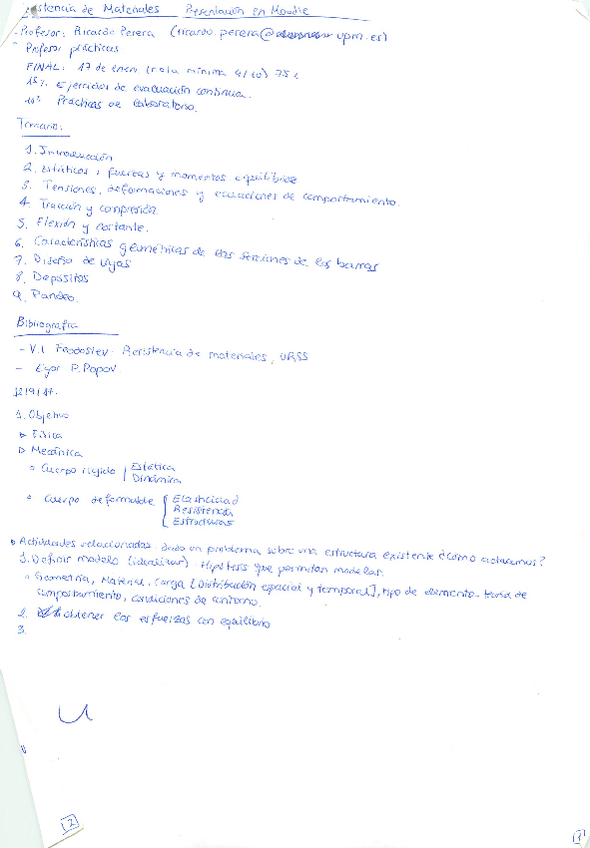 Resistencia de Materiales Presentación en Moodle
- Profesor: Ricardo Perera (ricardo.perera@upm.es)
- Profesor prácticas
FINAL: 17 de enero (nota mínima 4/10) 75%
15% Ejercicios de evaluación continua.
10% Prácticas de laboratorio.
Temario:
1. Introducción
2. Estáticos, fuerzas y momentos equilibrios
3. Tensiones, deformaciones y ecuaciones de comportamiento.
4. Tracción y compresión.
5. Flexión y cortante.
6. Características geométricas de las secciones de las barras
7. Diseño de vigas
8. Depósitos
9. Pandeo.
Bibliografía
- V.I. Feodosiev. Resistencia de materiales, URSS
- Egor P. Popov
12/9/17.
1. Objetivo
▷ Física
▷ Mecánica
◦ Cuerpo rígido | Estática
Dinámica
◦ Cuerpo deformable { Elasticidad
Resistencia
Estructuras
▷ Actividades relacionadas: dado un problema sobre una estructura existente ¿cómo actuamos?
1. Definir modelo (idealizar). Hipótesis que permitan modelar.
◦ Geometría, Material, Carga [Distribución espacial y temporal], tipo de elemento. teoría de
comportamiento, condiciones de contorno.
2. obtener los esfuerzos con equilibrio
3.
2
1